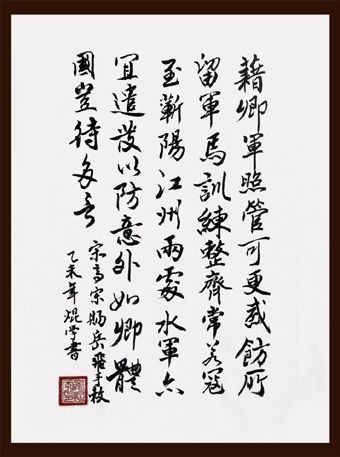 藉卿軍照管可更戒飭所
留軍馬訓練整齊常若寇
至蘄陽江州兩處水軍亦
宜遣發以防意外如卿體
國豈待多言
宋高宗賜岳飛手敕
乙未年焜学書